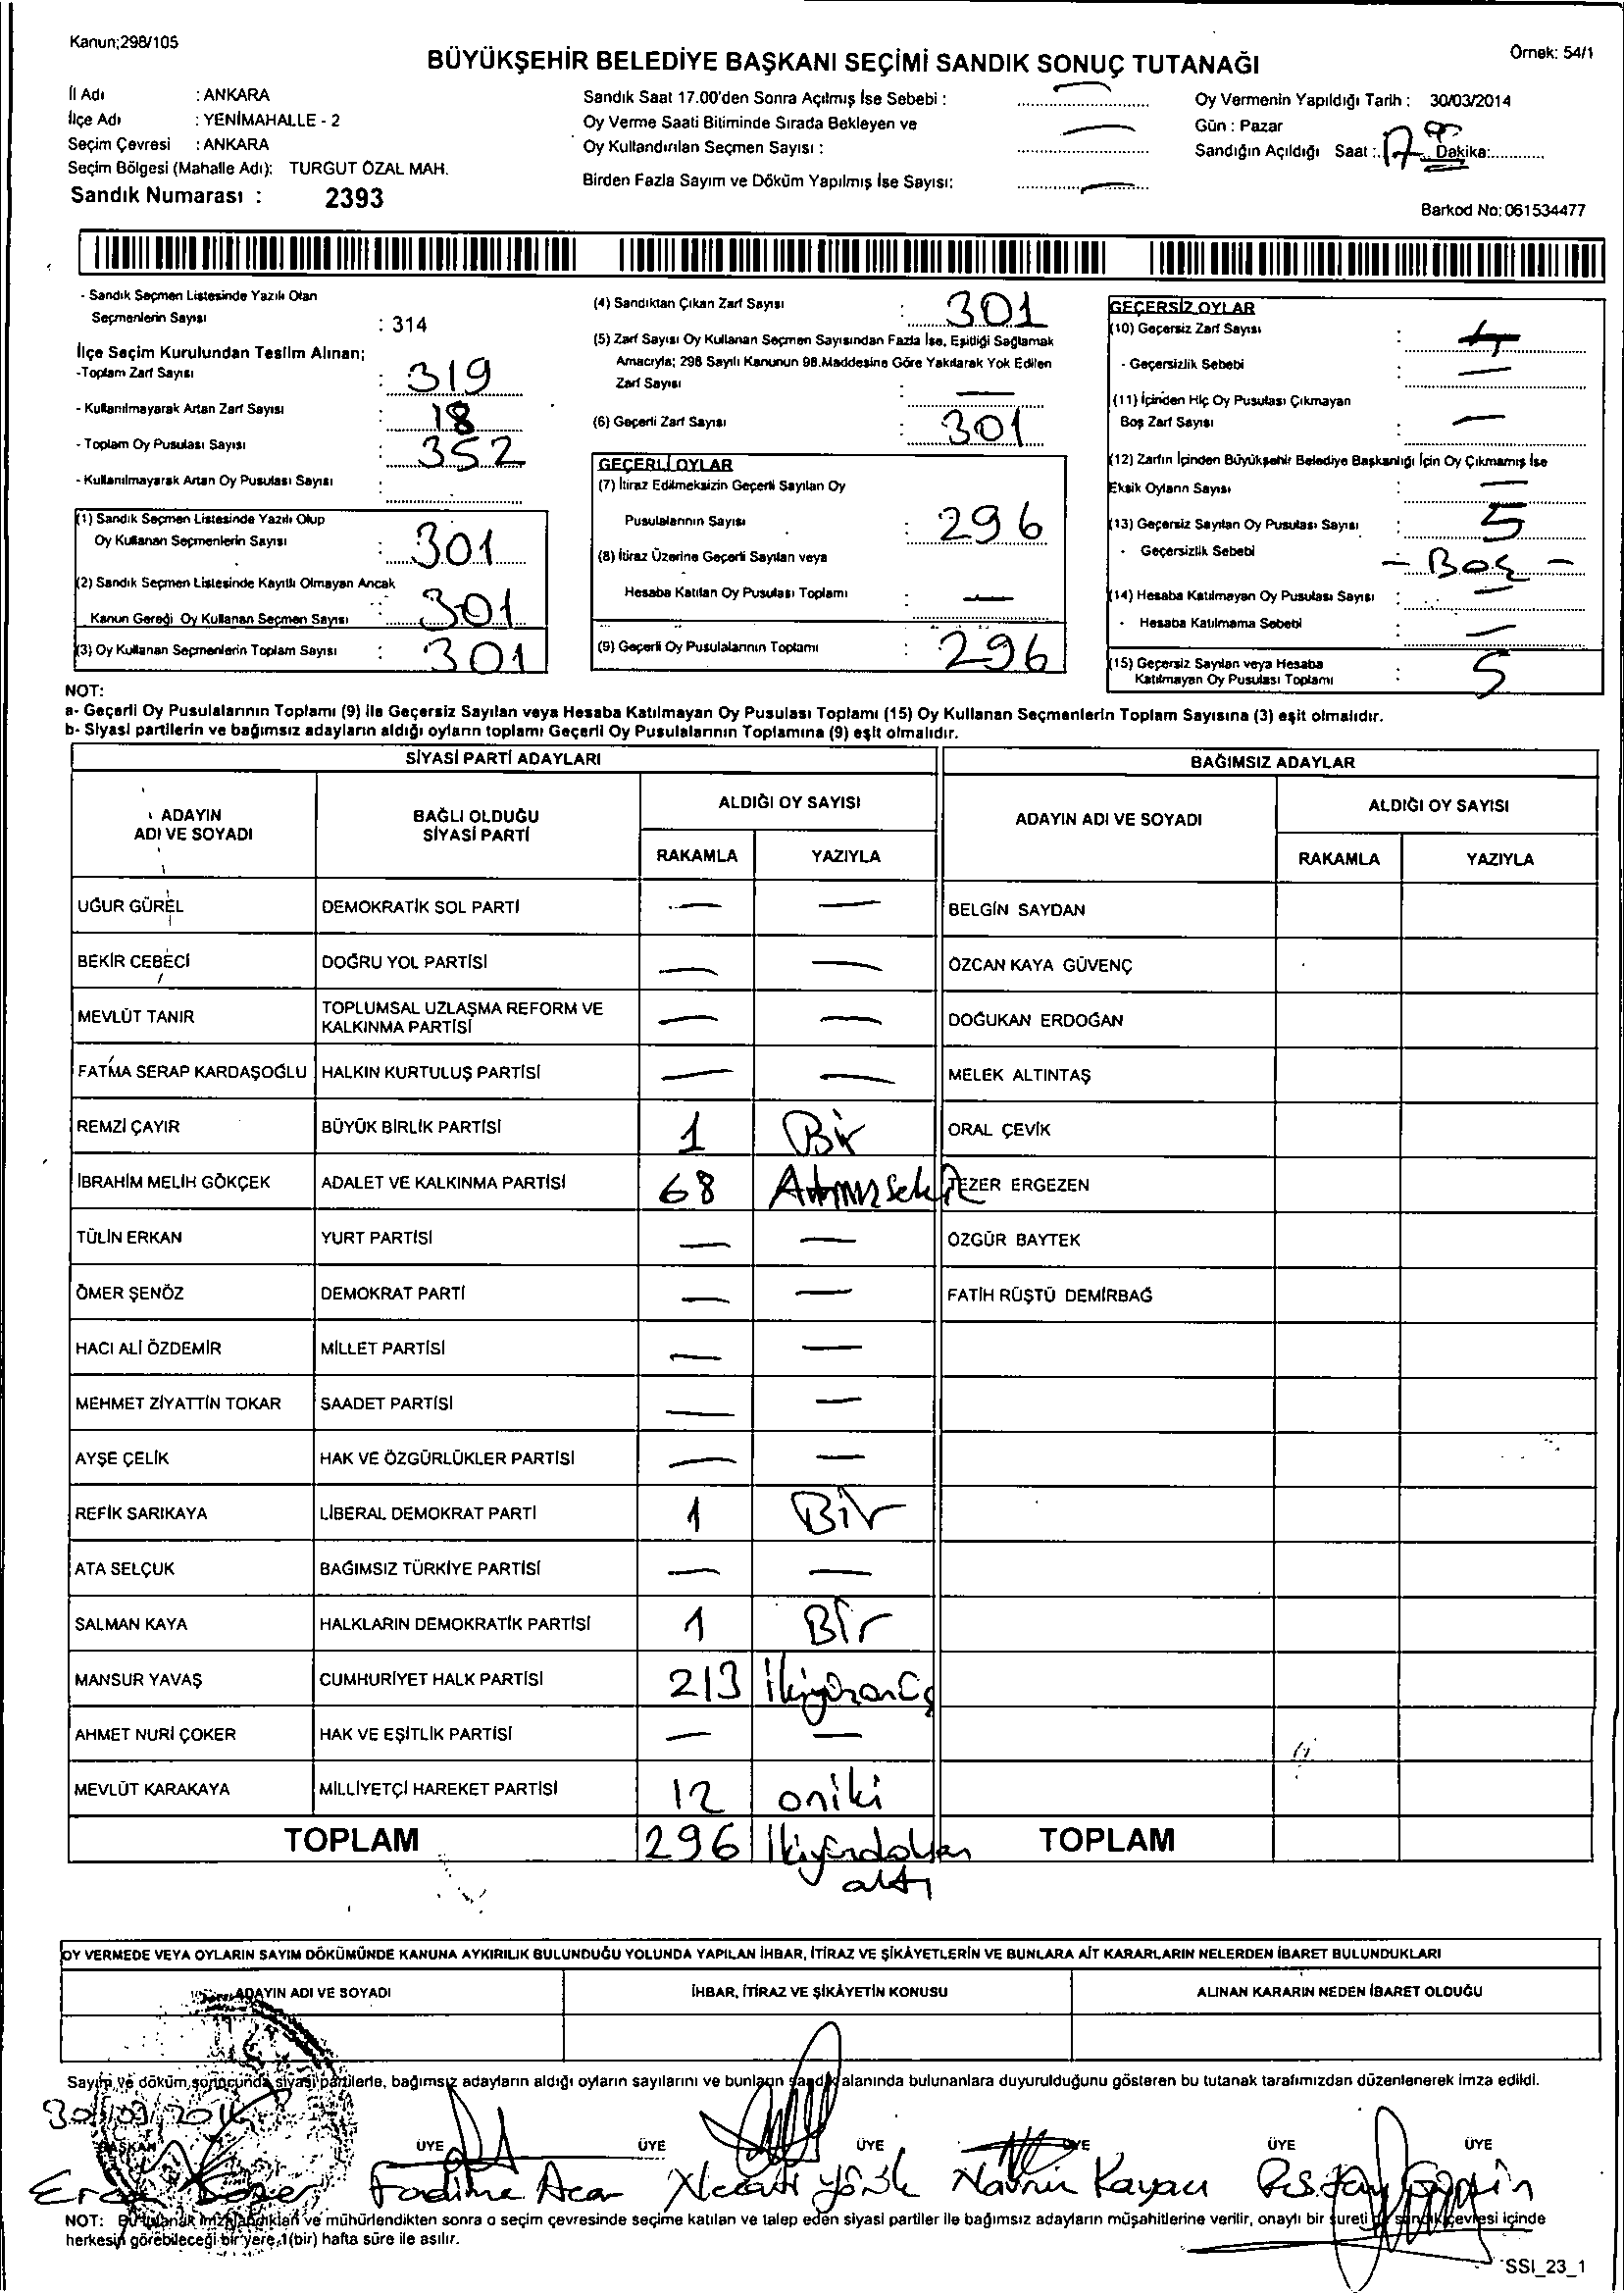 Kanun;298/105
Örnek: 54/1
BÜYÜKŞEHİR BELEDİYE BAŞKANI SEÇİMİ SANDIK SONUÇ TUTANAĞI
İl Adı : ANKARA
İlçe Adı : YENİMAHALLE - 2
Seçim Çevresi : ANKARA
Seçim Bölgesi (Mahalle Adı): TURGUT ÖZAL MAH.
Sandık Numarası : 2393
Sandık Saat 17.00'den Sonra Açılmış İse Sebebi :
Oy Verme Saati Bitiminde Sırada Bekleyen ve
Oy Kullandırılan Seçmen Sayısı :
Birden Fazla Sayım ve Döküm Yapılmış İse Sayısı:
Oy Vermenin Yapıldığı Tarih : 30/03/2014
Gün : Pazar
Sandığın Açıldığı Saat : 17 Dakika:
Barkod No: 061534477
- Sandık Seçmen Listesinde Yazılı Olan
Seçmenlerin Sayısı : 314
İlçe Seçim Kurulundan Teslim Alınan;
-Toplam Zarf Sayısı : 319
- Kullanılmayarak Artan Zarf Sayısı : 18
- Toplam Oy Pusulası Sayısı : 352
- Kullanılmayarak Artan Oy Pusulası Sayısı :
(1) Sandık Seçmen Listesinde Yazılı Olup
Oy Kullanan Seçmenlerin Sayısı : 301
(2) Sandık Seçmen Listesinde Kayıtlı Olmayan Ancak
Kanun Gereği Oy Kullanan Seçmen Sayısı : 301
(3) Oy Kullanan Seçmenlerin Toplam Sayısı : 301
(4) Sandıktan Çıkan Zarf Sayısı : 301
(5) Zarf Sayısı Oy Kullanan Seçmen Sayısından Fazla İse, Eşitliği Sağlamak
Amacıyla; 298 Sayılı Kanunun 98.Maddesine Göre Yakılarak Yok Edilen
Zarf Sayısı : —
(6) Geçerli Zarf Sayısı : 301
GEÇERLİ OYLAR
(7) İtiraz Edilmeksizin Geçerli Sayılan Oy
Pusulalarının Sayısı : 296
(8) İtiraz Üzerine Geçerli Sayılan veya
Hesaba Katılan Oy Pusulası Toplamı : —
(9) Geçerli Oy Pusulalarının Toplamı : 296
GEÇERSİZ OYLAR
(10) Geçersiz Zarf Sayısı :
- Geçersizlik Sebebi : —
(11) İçinden Hiç Oy Pusulası Çıkmayan
Boş Zarf Sayısı : —
(12) Zarfın İçinden Büyükşehir Belediye Başkanlığı İçin Oy Çıkmamış İse
Eksik Oyların Sayısı : —
(13) Geçersiz Sayılan Oy Pusulası Sayısı : 5
- Geçersizlik Sebebi - Boş -
(14) Hesaba Katılmayan Oy Pusulası Sayısı : —
- Hesaba Katılmama Sebebi : —
(15) Geçersiz Sayılan veya Hesaba
Katılmayan Oy Pusulası Toplamı : 5
NOT:
a- Geçerli Oy Pusulalarının Toplamı (9) ile Geçersiz Sayılan veya Hesaba Katılmayan Oy Pusulası Toplamı (15) Oy Kullanan Seçmenlerin Toplam Sayısına (3) eşit olmalıdır.
b- Siyasi partilerin ve bağımsız adayların aldığı oyların toplamı Geçerli Oy Pusulalarının Toplamına (9) eşit olmalıdır.
SİYASİ PARTİ ADAYLARI BAĞIMSIZ ADAYLAR
ADAYIN ADI VE SOYADI BAĞLI OLDUĞU SİYASİ PARTİ ALDIĞI OY SAYISI ADAYIN ADI VE SOYADI ALDIĞI OY SAYISI
RAKAMLA YAZIYLA RAKAMLA YAZIYLA
UĞUR GÜREL DEMOKRATİK SOL PARTİ — — BELGİN SAYDAN
BEKİR CEBECİ DOĞRU YOL PARTİSİ — — ÖZCAN KAYA GÜVENÇ
MEVLÜT TANIR TOPLUMSAL UZLAŞMA REFORM VE KALKINMA PARTİSİ — — DOĞUKAN ERDOĞAN
FATMA SERAP KARDAŞOĞLU HALKIN KURTULUŞ PARTİSİ — — MELEK ALTINTAŞ
REMZİ ÇAYIR BÜYÜK BİRLİK PARTİSİ 1 Bir ORAL ÇEVİK
İBRAHİM MELİH GÖKÇEK ADALET VE KALKINMA PARTİSİ 68 Atmışsekiz TEZER ERGEZEN
TÜLİN ERKAN YURT PARTİSİ — — ÖZGÜR BAYTEK
ÖMER ŞENÖZ DEMOKRAT PARTİ — — FATİH RÜŞTÜ DEMİRBAĞ
HACI ALİ ÖZDEMİR MİLLET PARTİSİ — —
MEHMET ZİYATTİN TOKAR SAADET PARTİSİ — —
AYŞE ÇELİK HAK VE ÖZGÜRLÜKLER PARTİSİ — —
REFİK SARIKAYA LİBERAL DEMOKRAT PARTİ 1 Bir
ATA SELÇUK BAĞIMSIZ TÜRKİYE PARTİSİ — —
SALMAN KAYA HALKLARIN DEMOKRATİK PARTİSİ 1 Bir
MANSUR YAVAŞ CUMHURİYET HALK PARTİSİ 213 İkiyüzonüç
AHMET NURİ ÇOKER HAK VE EŞİTLİK PARTİSİ — —
MEVLÜT KARAKAYA MİLLİYETÇİ HAREKET PARTİSİ 12 oniki
TOPLAM 296 İkiyüzdoksan altı TOPLAM
OY VERMEDE VEYA OYLARIN SAYIM DÖKÜMÜNDE KANUNA AYKIRILIK BULUNDUĞU YOLUNDA YAPILAN İHBAR, İTİRAZ VE ŞİKÂYETLERİN VE BUNLARA AİT KARARLARIN NELERDEN İBARET BULUNDUKLARI
ADAYIN ADI VE SOYADI İHBAR, İTİRAZ VE ŞİKÂYETİN KONUSU ALINAN KARARIN NEDEN İBARET OLDUĞU
Sayım ve döküm sonucunda siyasi partilerle, bağımsız adayların aldığı oyların sayılarını ve bunların sandık alanında bulunanlara duyurulduğunu gösteren bu tutanak tarafımızdan düzenlenerek imza edildi.
30/03/2014
BAŞKAN ÜYE ÜYE ÜYE ÜYE ÜYE ÜYE
Fadime Acar Necati Kayacı
NOT: Bu tutanak imzalandıktan ve mühürlendikten sonra o seçim çevresinde seçime katılan ve talep eden siyasi partiler ile bağımsız adayların müşahitlerine verilir, onaylı bir sureti de sandık çevresi içinde
herkesin görebileceği bir yere 1(bir) hafta süre ile asılır.
SSI_23_1